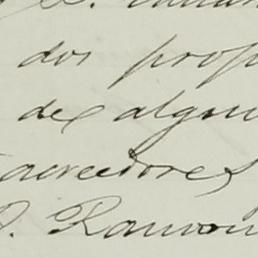 dos prop
de algun
acreedores
D. Ramon